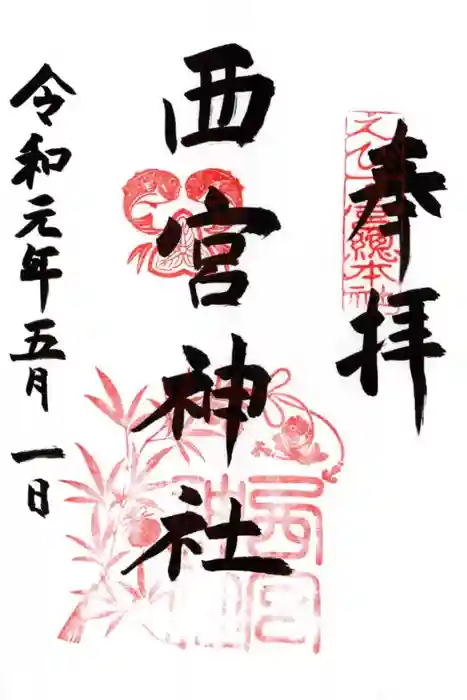 奉拝
えびす宮總本社
西宮神社
令和元年五月一日